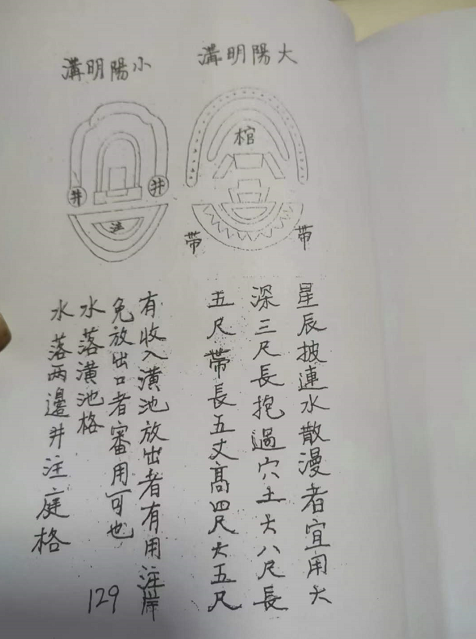 大陽明溝
小陽明溝
棺
帶
帶
井
井
星辰披連水散漫者宜用大
深三尺長抱過穴土大八尺長
五尺帶長五丈高四尺大五尺
有收入潢池放出者有用注岸
免放出口者審用可也
水落潢池格
水落两邊井注庭格
129